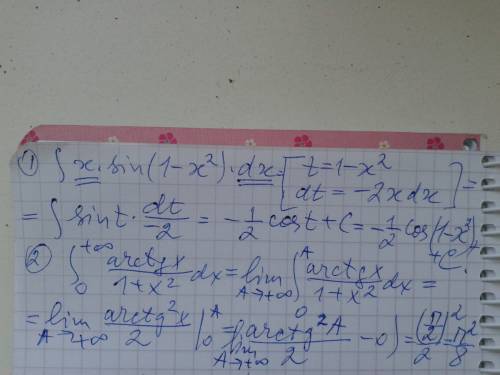 ① ∫ x·sin(1-x²)·dx = [t=1-x² =
dt = -2xdx]
= ∫ sint·dt/-2 = -1/2 cost+C = -1/2 cos(1-x²)+C.
② ∫₀^{+∞} arctgx/(1+x²) dx = lim_{A→+∞} ∫₀^A arctgx/(1+x²) dx =
= lim_{A→+∞} arctg²x/2 |₀^A = lim_{A→+∞} (arctg²A/2 - 0) = (π/2)²/2 = π²/8